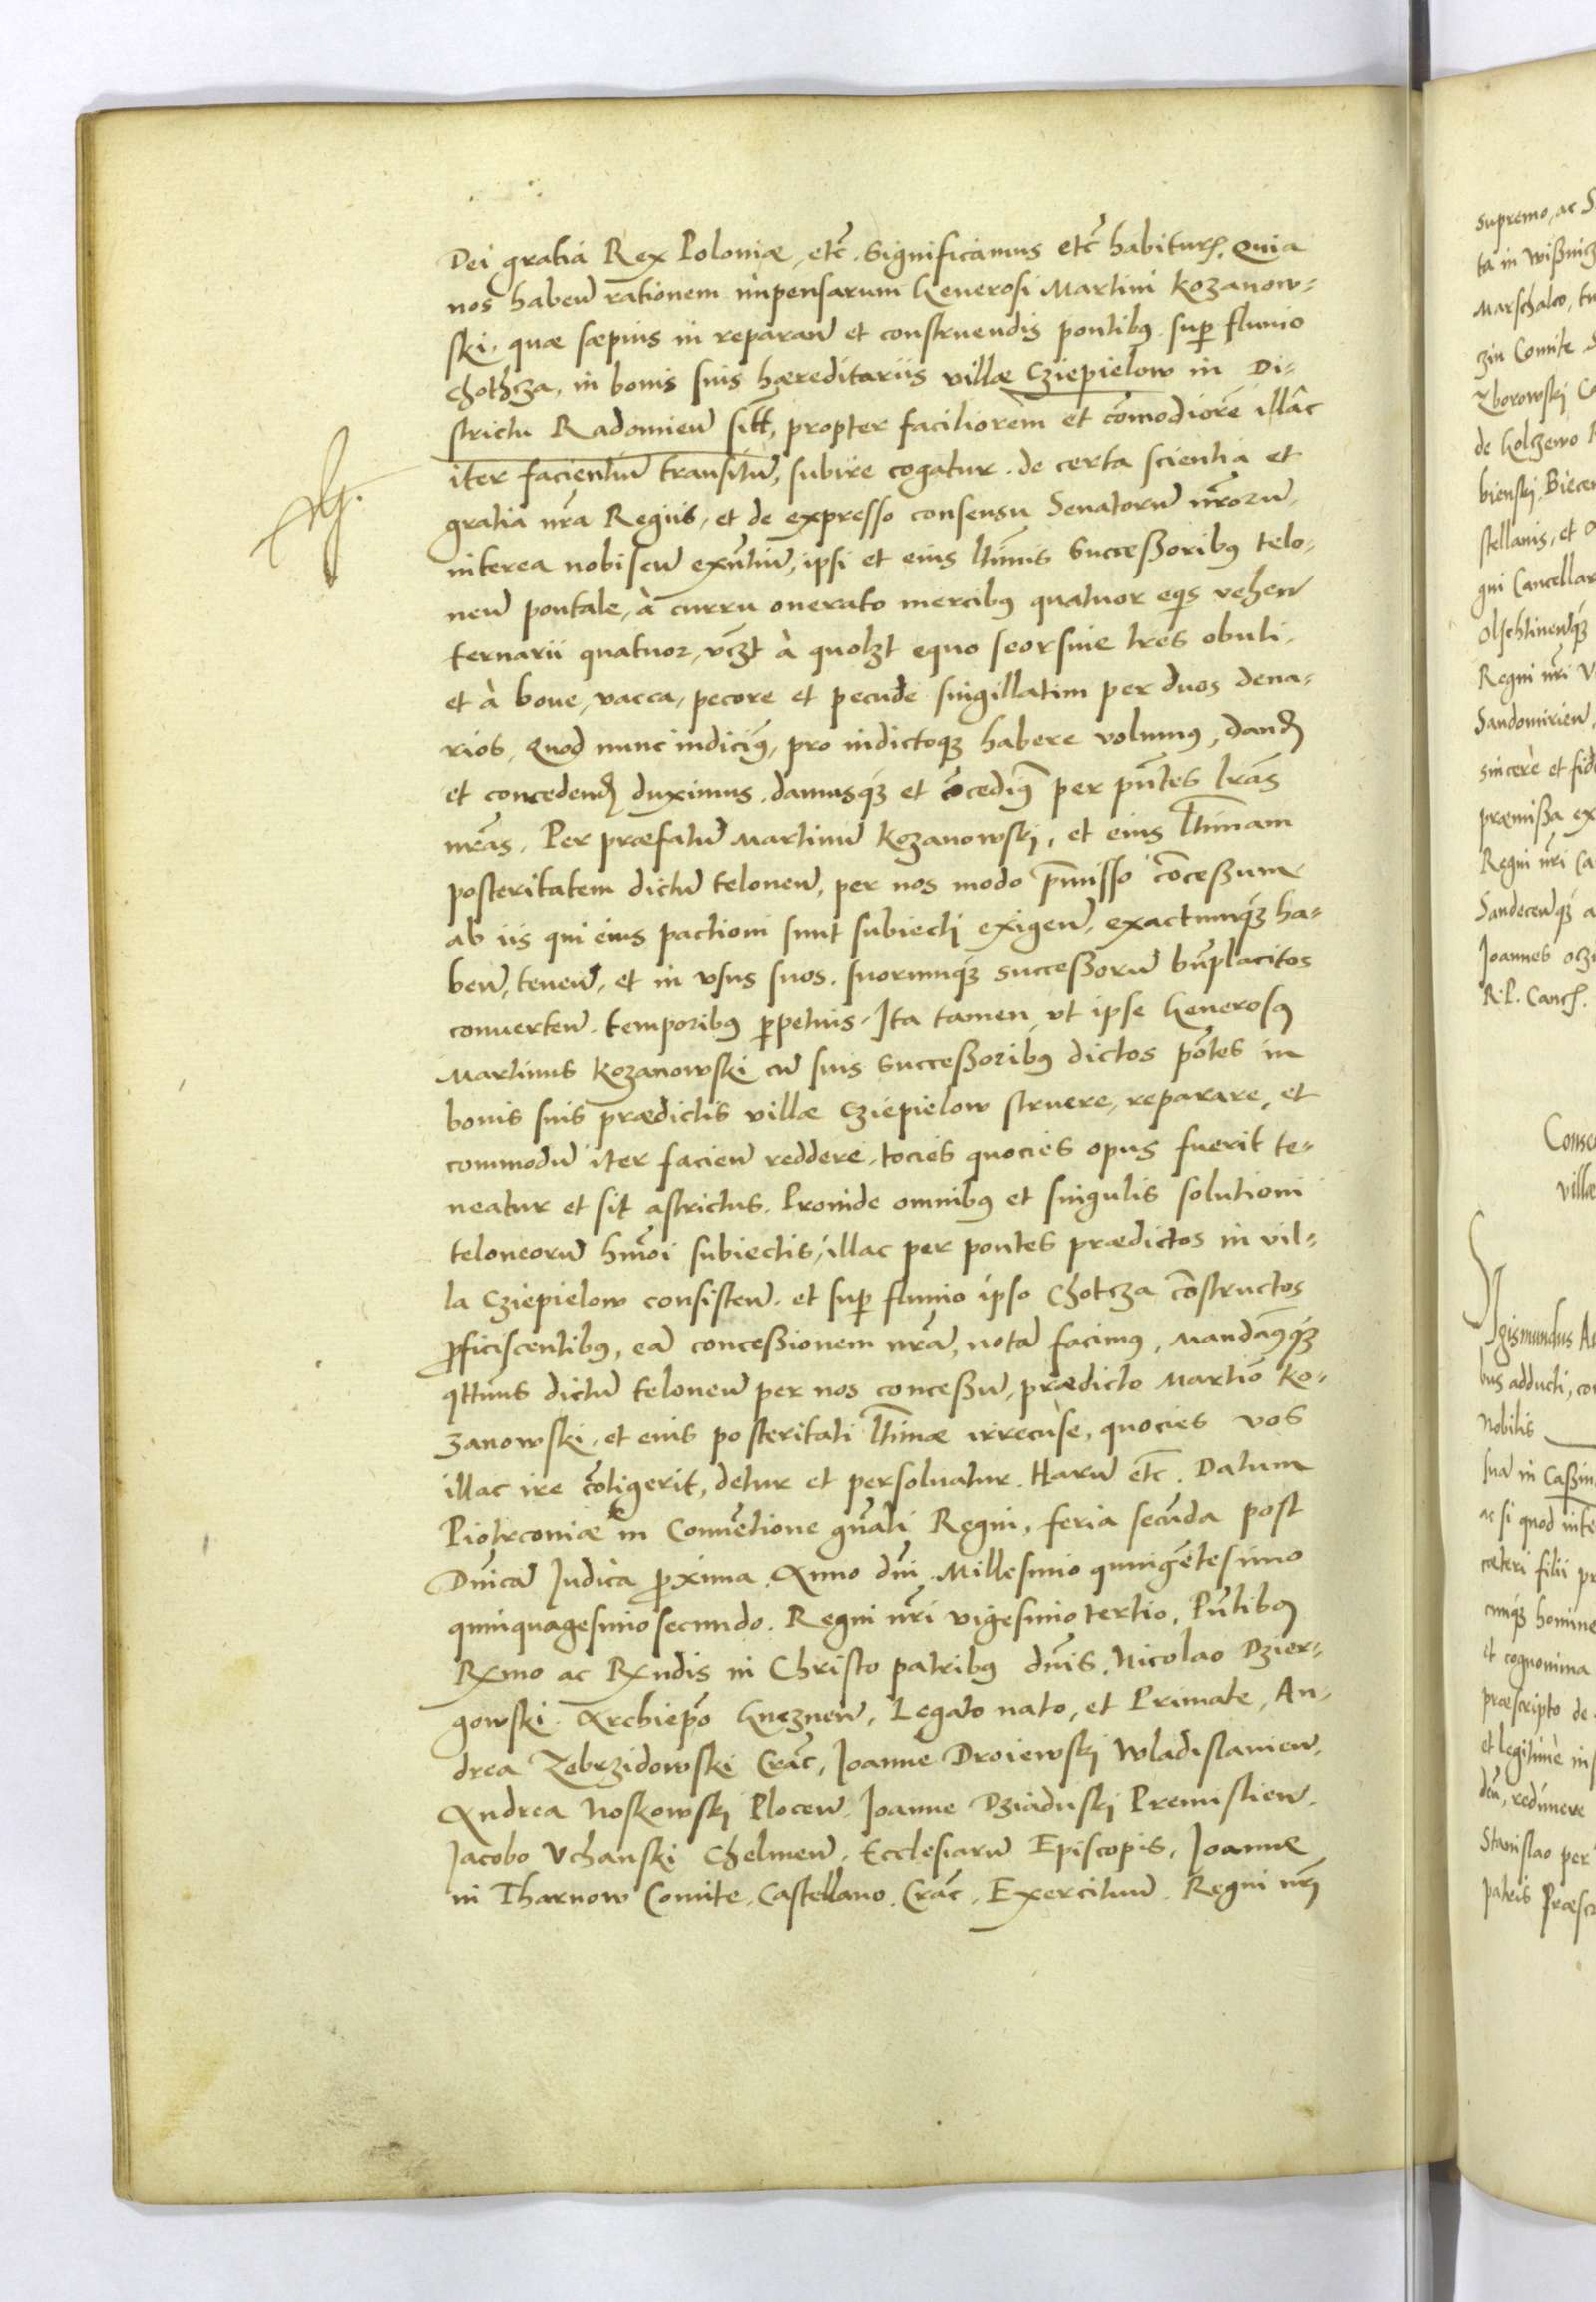 Dei gratia Rex Poloniæ, etc̃. Significamus etc̃ habitur. Quia
nos habeñ rationem impensarum Generosi Martini Kozanow-
ski, quæ sæpius in reparañ et construendis pontibus sup fluuio
Chothcza, in bonis suis hæreditariis villæ Cziepielow in Di-
strictu Radomieñ sitis, propter faciliorem et cõmodiorẽ illâc
iter facientiũ transitũ, subire cogatur. de certa scientia et
gratia nr̃a Regiis, et de expresso consensu Senatorũ nr̃orũ,
interea nobiscũ exñtiũ, ipsi et eius ltimis Successoribus telo-
neũ pontale, à curru onerato mercibus quatuor eqis veheñ
ternarii quatuor, vczt à quolzt equo seorsiue tres obuli,
et à boue, vacca, pecore et pecude singillatim per duos dena-
rios, Quod nunc indicimus, pro indictoque habere volumus, dand
et concedend duximus. damusque et cõcedimus per pñtes lr̃as
nr̃as. Per præfatũ Martinũ Kozanowski, et eius ltimam
posteritatem dictũ teloneũ, per nos modo pmisso cõcessum
ab iis qui eius pactioni sunt subiecti exigeñ, exactumque ha-
beñ, teneñ, et in vsus suos, suorumque successorũ bñplacitos
conuerteñ. temporibus ppetuis. Ita tamen, vt ipse Generosus
Martinus Kozanowski cũ suis Successoribus dictos põtes in
bonis suis prædictis villæ Cziepielow struere, reparare, et
commodũ iter facieñ reddere, tocies quocies opus fuerit te-
neatur et sit astrictus. Proinde omnibus et singulis solutioni
teloneorũ hmõi subiectis, illac per pontes prædictos in vil-
la Cziepielow consisteñ. et sup fluuio ipso Chotcza cõstructos
pficiscentibus, eã concessionem nr̃ã, notã facimus, Mandamusque
qttinus dictũ teloneũ per nos concessũ, prædicto Martiõ Ko-
zanowski, et eius posteritati ltimæ irrecuse, quocies vos
illac ire cõtigerit, detur et persoluatur. Harũ etc̃. Datum
Piotrconiæ in Conuẽtione gñali Regni, feria secũda post
Dñicã Iudica pxima. Anno dñi Millesimo quingẽtesimo
quinquagesimo secundo. Regni nr̃i vigesimo tertio, Pñtibus
Rxmo ac Rxndis in Christo patribus dñis, Nicolao Dzier-
gowski Archiepõ Gnezneñ, Legato nato, et Primate, An-
drea Zebrzidowski Crac̃, Joanne Droiewski Wladislauieñ,
Andrea Noskowski Ploceñ. Joanne Dziaduski Premislieñ.
Jacobo Vchanski Chelmeñ. Ecclesiarũ Episcopis, Joanne
in Tharnow Comite, Castellano Crac̃, Exercituũ Regni nr̃i
supremo, ac
ta in
Marschalco,
zin Comite
Zborowski
de Golczewo
bienski
stellanis, et
gni Cancellar
Regni nr̃i
Sandomirieñ
sincere et
præmissa ex
Regni nr̃i
Sandeceñque
Joannes
R. P. Canc.
villæ
Sigismundus
bus adducti,
Nobilis
ac si quod
cæteri filii
cumque homine
et cognomina
præscripto de
et legitime
redimere
Stanislao per
patris